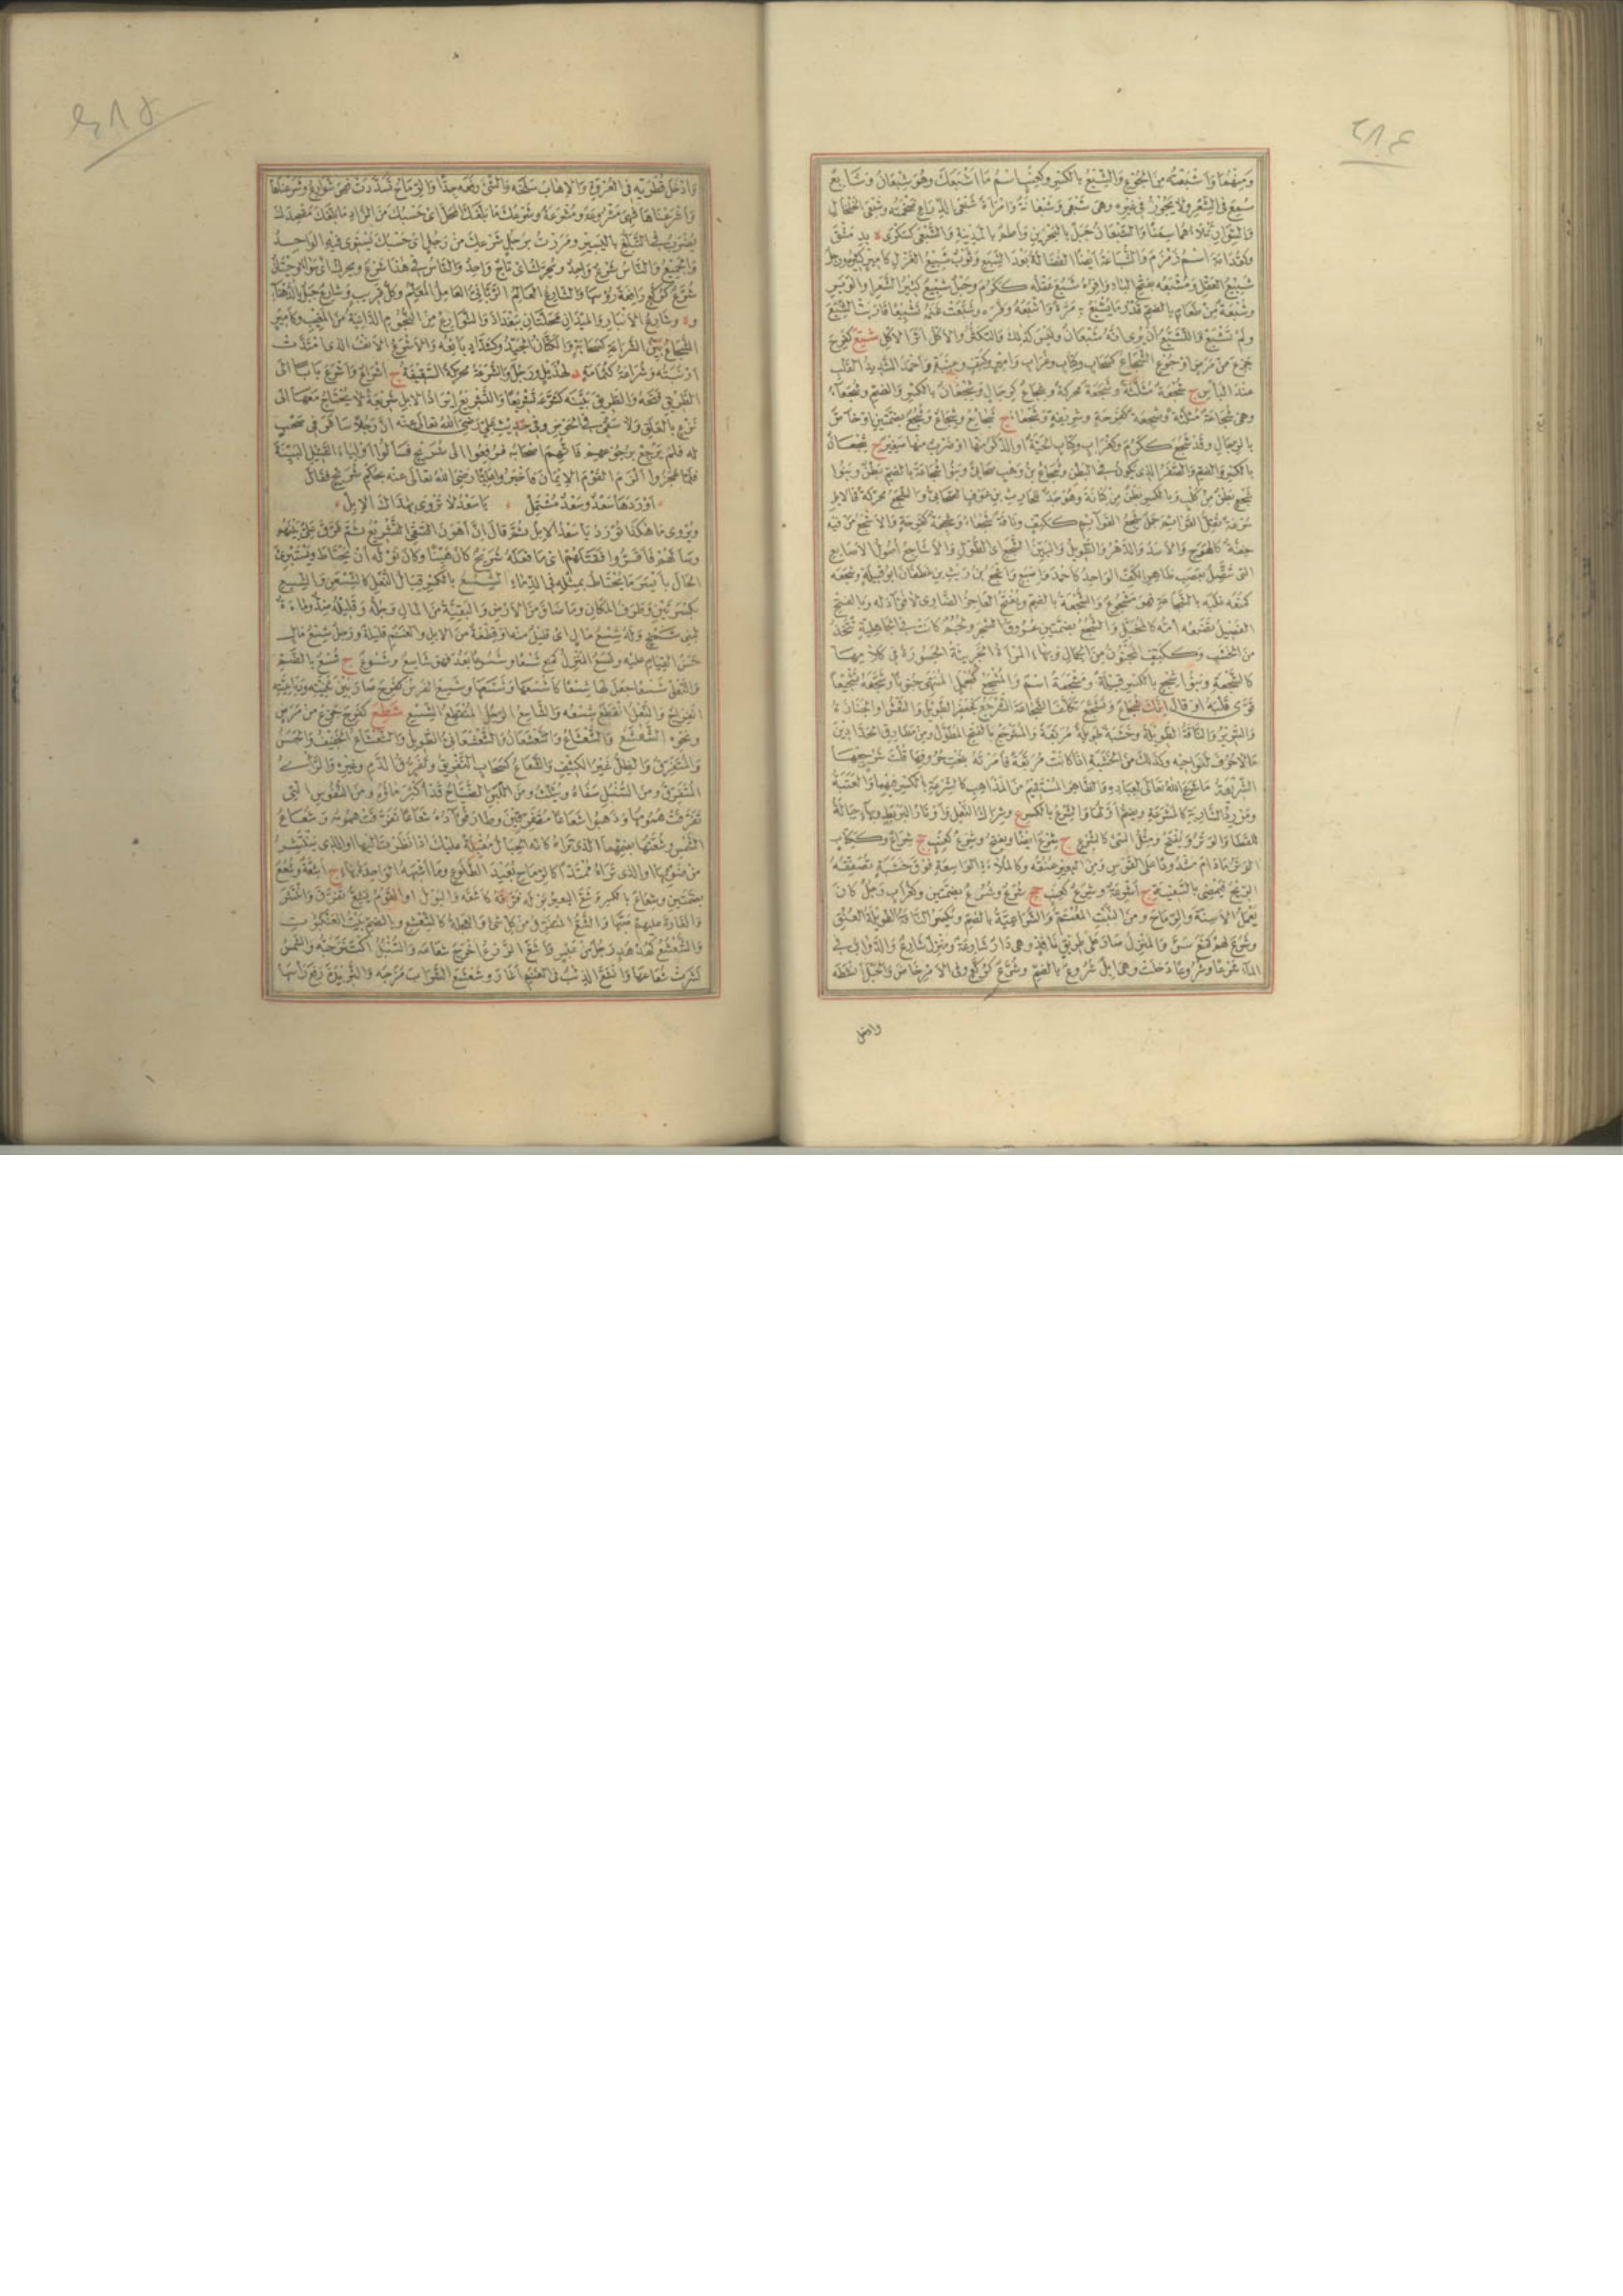 ٤٨٢
ومنهما واشبعته من الجوع والشبع بالكسر وكعنب اسم ما اشبعك وهو شبعان وشابع
سمع في الشعر ولا يجوز في غيره وهي شبعى وشبعانة وامراة شبعى الذراع ضخمته وشبعى الخلخال
والسوار تملاهما سمنا والشبعان جبل بالبحرين واطم بالمدينة والشبعى كسكرى ة بدمشق
وكقدامة اسم زمزم والشباعة ايضا الفضالة بعد الشبع وثوب شبيع الغزل كامير كثيره ورجل
شبيع العقل ومشبعه بفتح الباء وافره شبع عقله ككرم وحبل شبيع كثير الشعر او الوبر
وشبعة من طعام بالضم قدر ما يشبع به مرة واشبعه وفره وشبعت غنمه تشبيعا قاربت الشبع
ولم تشبع والتشبع ان يرى انه شبعان وليس كذلك والتكثر والاكل اثر الاكل شتع كفرح
جزع من مرض او جوع الشجاع كسحاب وكتاب وغراب وامير وكتف وعنبة واحمد الشديد القلب
عند الباس ج شجعة مثلثة وشجعة محركة وشجاع كرجال وشجعان بالكسر والضم وشجعاء
وهي شجاعة مثلثة وشجعة كفرحة وشريفة وشجعاء ج شجائع وشجاع وشجع بضمتين او خاص
بالرجال وقد شجع ككرم وكغراب وكتاب الحية او الذكر منها او ضرب منها صغير ج شجعان
بالكسر والضم والصفر الذي يكون في البطن وشجاع بن وهب صحابي وبنو شجاعة بالضم بطن وبنو
شجع بطن من كلب وبالكسر بطن من كنانة وهو جد للحارث بن عوف الصحابي والشجع محركة في الابل
سرعة نقل القوائم جمل شجع القوائم ككتف وناقة شجعاء وشجعة كفرحة والاشجع من فيه
خفة كالهوج والاسد والدهر والطويل والبين الشجع اي الطول والاشاجع اصول الاصابع
التي تتصل بعصب ظاهر الكف الواحد كاحمد واصبع واشجع بن ريث بن غطفان ابو قبيلة وشجعه
كمنعه غلبه بالشجاعة فهو مشجوع والشجعة بالضم ويفتح العاجز الضاوي لا فؤاد له وبالفتح
الفصيل تضعه امه كالمخبل والشجع بضمتين عروق الشجر ولجم كانت في الجاهلية تتخذ
من الخشب وككتف المجنون من الجمال وبهاء المراة الجريئة الجسورة في كلامها
كالشجعة وبنو شجع بالكسر قبيلة ومشجعة اسم والمشجع كمجمل المنتهى جنونا وشجعه تشجيعا
قوى قلبه او قال انك شجاع وتشجع تكلف الشجاعة الشرجع كجعفر الطويل والنعش او الجنازة
والسرير والناقة الطويلة وخشبة طويلة مربعة والمشرجع بالفتح المطول ومن مطارق الحدادين
ما لا حروف لنواحيه وكذلك من الخشبة اذا كانت مربعة فامرته بنحت حروفها قلت شرجعها
الشريعة ما شرع الله تعالى لعباده والظاهر المستقيم من المذاهب كالشرعة بالكسر فيهما والعتبة
ومورد الشاربة كالمشرعة ويضم راؤها والشرع بالكسر ع وشراك النعل واوتار البربط وبهاء حبالة
للقطا والوتر ويفتح ومثل الشئ كالشرع ج شرع ايضا ويفتح وشرع كعنب جج شراع وككتاب
الوتر ما دام مشدودا على القوس ومن البعير عنقه وكالملاءة الواسعة فوق خشبة تصفقه
الريح فيمضي بالسفينة ج اشرعة وشرع كعنب جج شرع وشرع بضمتين وكغراب رجل كان
يعمل الاسنة والرماح ومن النبت المعتم والشراعية بالضم ويكسر الناقة الطويلة العنق
وشرع لهم كمنع سن والمنزل صار على طريق نافذ وهي دار شارعة ومنزل شارع والدواب في
الماء شرعا وشروعا دخلت وهي ابل شروع بالضم وشرع كركع وفي الامر خاض والحبل انشطه
وادخل
٤٨٥
وادخل قطريه في العروة والاهاب سلخه والشئ رفعه جدا والرماح تسددت فهي شوارع وشرعناها
واشرعناها فهي مشروعة ومشرعة وشرعك ما بلغك المحل اي حسبك من الزاد ما بلغك مقصدك
يضرب في التبلغ باليسير ومررت برجل شرعك من رجل اي حسبك يستوي فيه الواحد
والجميع والناس شرع واحد ويحرك اي باج واحد والناس في هذا شرع ويحرك اي سواء وحيتان
شرع كركع رافعة رؤسها والشارع العالم الرباني العامل المعلم وكل قريب وشارع جبل بالدهناء
و ة وشارع الانبار والميدان محلتان ببغداد والشوارع من النجوم الدانية من المغيب وكامير
الشجاع بين الشراعة كسحابة والكتان الجيد وكشداد بائعه والاشرع الانف الذي امتدت
ارنبته وشراعة كثمامة د لهذيل ورجل والشرعة محركة السقيفة ج اشراع واشرع بابا الى
الطريق فتحه والطريق بينه كشرعه تشريعا والتشريع ايراد الابل شريعة لا يحتاج معها الى
نزع بالعلق ولا سقي في الحوض وفي حديث علي رضى الله تعالى عنه ان رجلا سافر في صحب
له فلم يرجع برجوعهم فاتهم اصحابه فرفعوا الى شريح فسال اولياء القتيل البينة
فلما عجزوا الزم القوم الايمان فاخبروا عليا رضى الله تعالى عنه بحكم شريح فقال
اوردها سعد وسعد مشتمل يا سعد لا تروى بهذاك الابل
ويروى ما هكذا تورد يا سعد الابل ثم قال ان اهون السقي التشريع ثم فرق علي بينهم
وسالهم فاقروا فقتلهم اي ما فعله شريح كان هينا وكان نوله ان يحتاط ويستبرئ
الحال بايسر ما يحتاط بمثله في الدماء الشسع بالكسر قبال النعل كالشسعن والشسع
بكسرتين وطرف المكان وما ضاق من الارض والبقية من المال وجله وقليله ضد وماءة
لبني شمخ وله شسع مال اي قليل منه او قطعة من الابل والغنم قليلة ورجل شسع مال
حسن القيام عليه وشسع المنزل كمنع شسعا وشسوعا بعد فهو شاسع وشسوع ج شسع بالضم
والنعل شسعا جعل لها شسعا كاشسعها وشسعها وشسع الفرس كفرح صار بين ثنيته ورباعيته
انفراج والنعل انقطع شسعه والشاسع الرجل المنقطع الشسع شطع كفرح جزع من مرض
ونحوه الشعشع والشعشاع والشعشعان والشعشعاني الطويل والشعشاع الخفيف والحسن
والمتفرق والظل غير الكثيف والشعاع كسحاب التفريق وتفرق الدم وغيره والراي
المتفرق ومن السنبل سفاه ويثلث ومن اللبن الضياح قد اكثر ماؤه ومن النفوس التي
تفرقت همومها وذهبوا شعاعا متفرقين وطار فؤاده شعاعا تفرقت همومه وشعاع
الشمس وشعها بضمهما الذي تراه كانه الحبال مقبلة عليك اذا نظرت اليها او الذي ينتشر
من ضوئها او الذي تراه ممتدا كالرماح بعيد الطلوع وما اشبهه الواحدة بهاء ج اشعة وشعع
بضمتين وشعاع بالكسر وشع البعير بوله فرقه كاشعه والبول او القوم يشع تفرق وانتشر
والغارة عليهم صبها والشع المتفرق من كل شئ والعجلة كالشعشع وبالضم بيت العنكبوت
والشعشع كهدهد رجل من عبس واشع الزرع اخرج شعاعه والسنبل اكتنز حبه والشمس
نشرت شعاعها وانشع الذئب في الغنم اغار وشعشع الشراب مزجه والثريدة رفع راسها